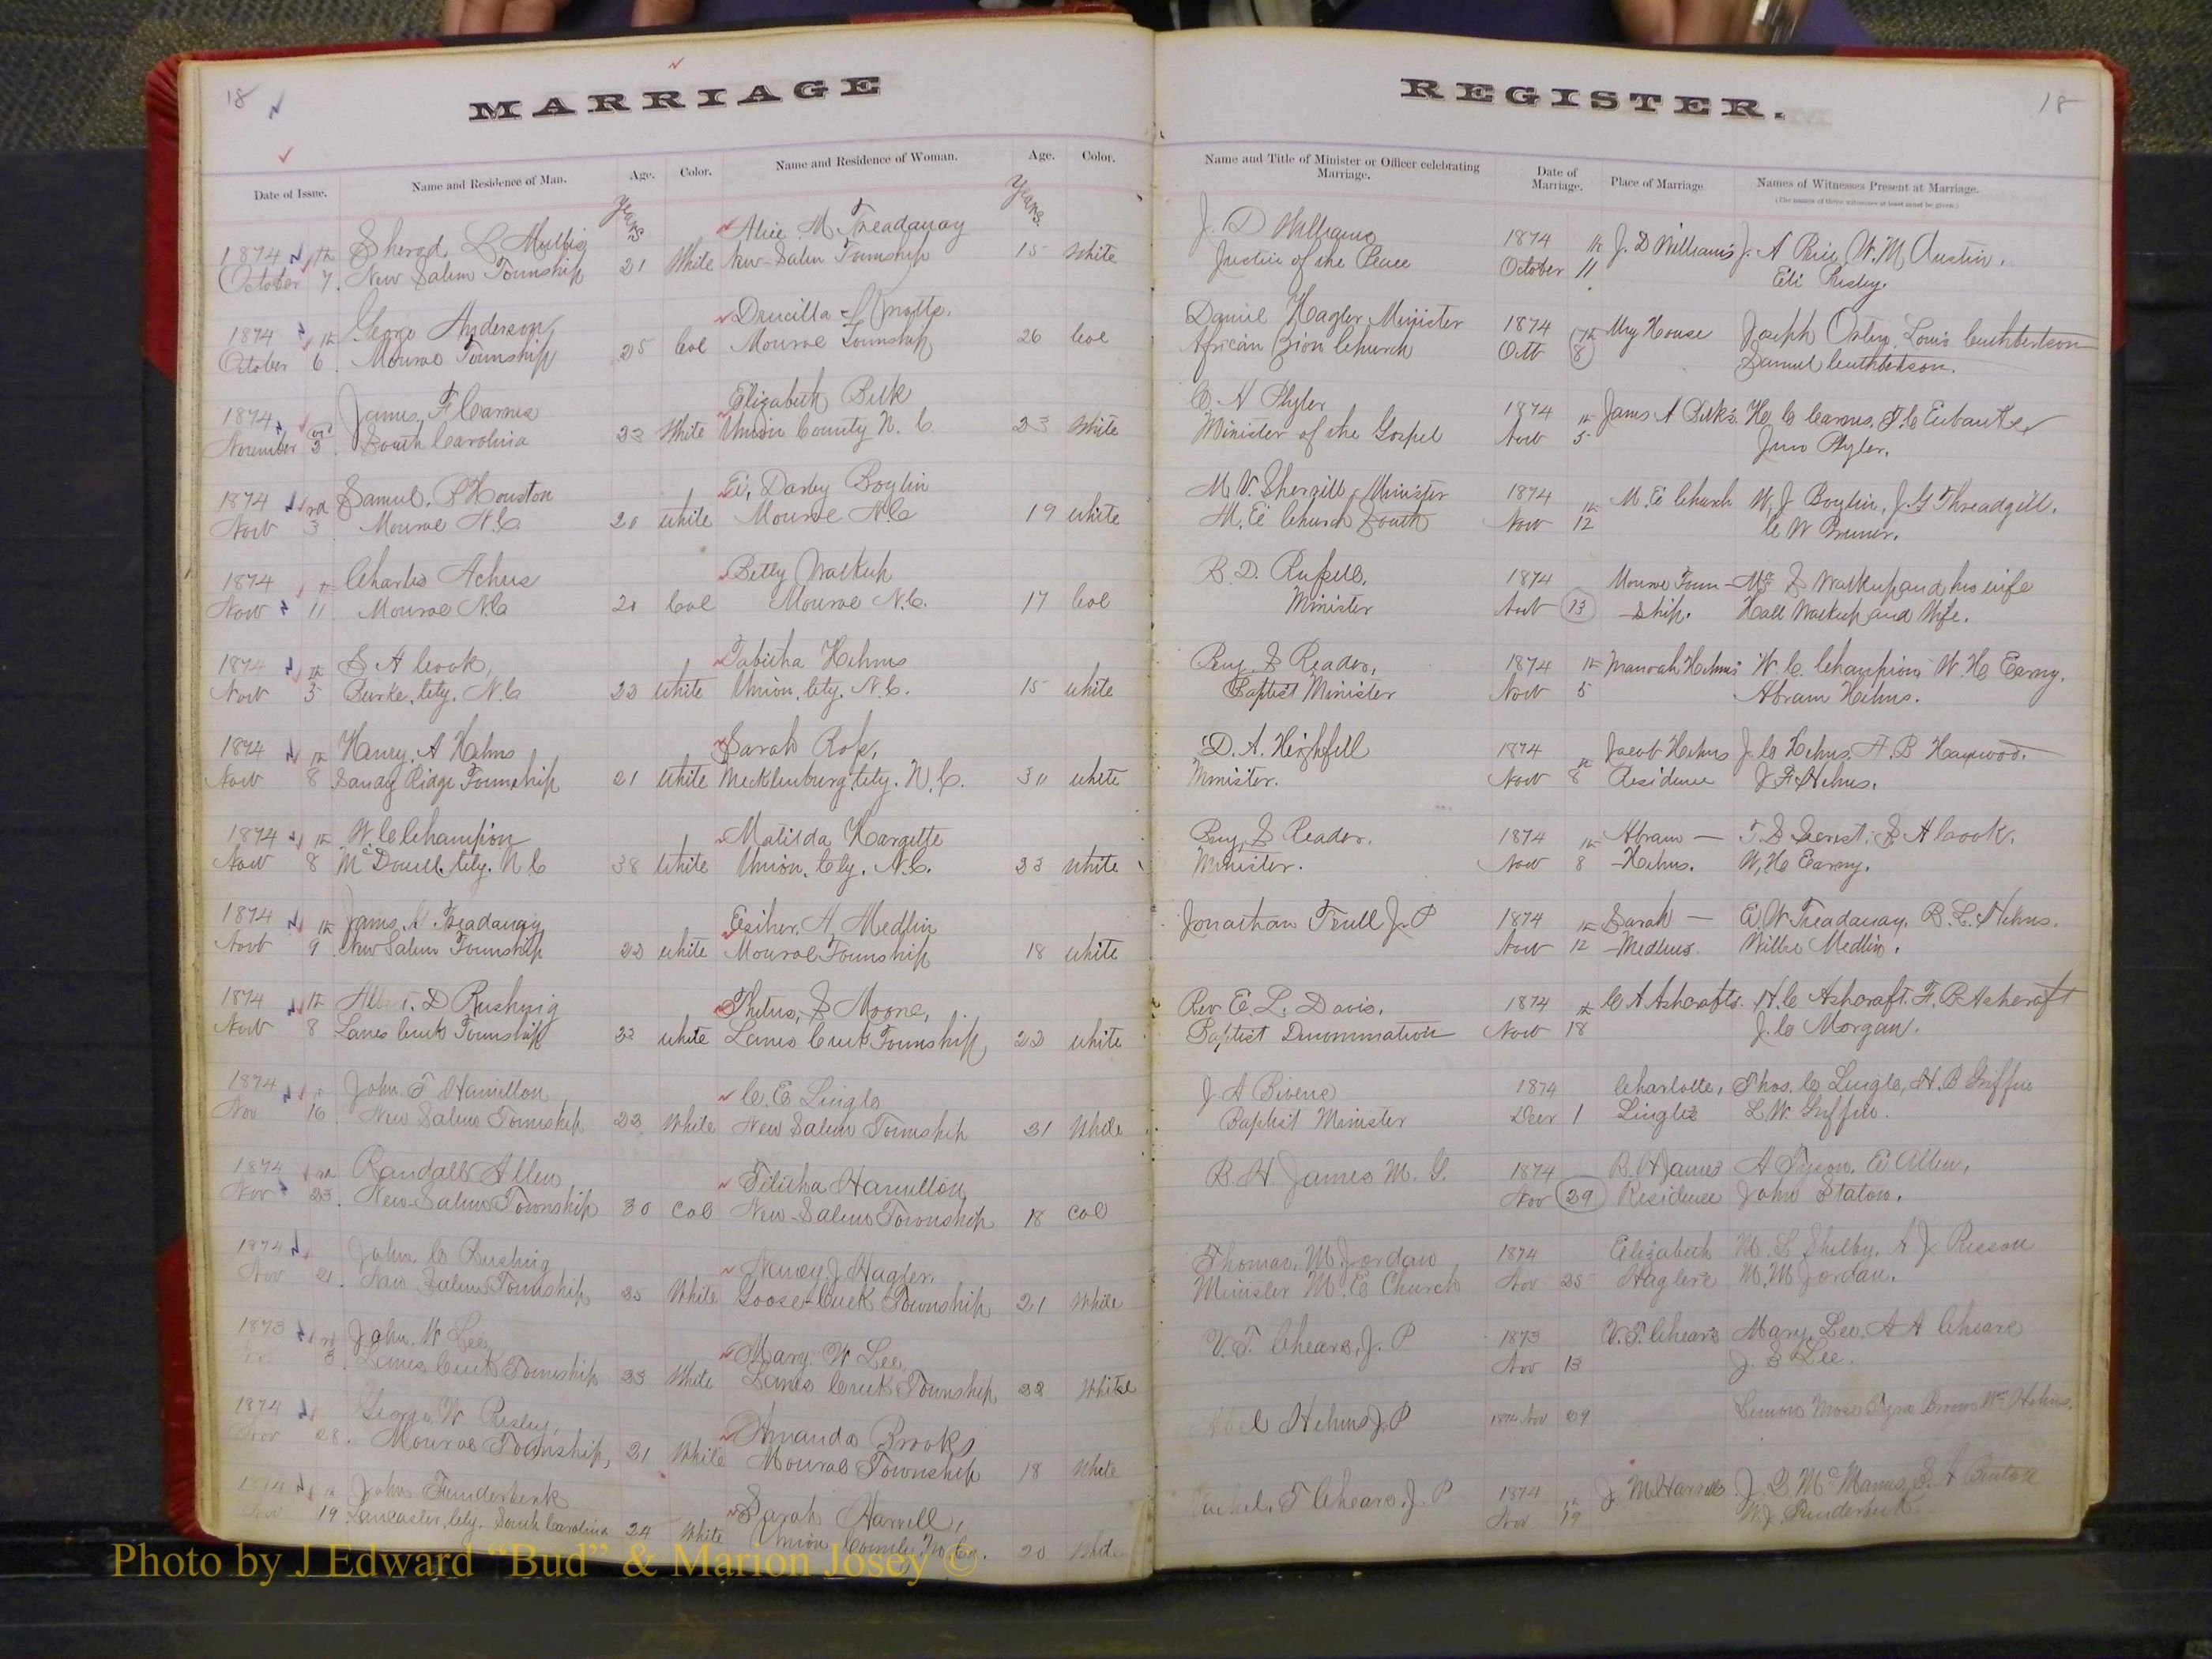 18
MARRIAGE
REGISTER.
18
Date of Issue. Name and Residence of Man. Age. Color. Name and Residence of Woman. Age. Color.
Name and Title of Minister or Officer celebrating Marriage. Date of Marriage. Place of Marriage Names of Witnesses Present at Marriage.
(The names of three witnesses at least must be given)
Years Years
1874 th Sherod L Alice M Treadaway J. D Williams 1874 th J. D Williams J. A Rice, W. M Austin,
October 7. New Salem Township 21 White New Salem Township 15 White Justice of the Peace October 11 Eli Presley.
1874 th George Anderson, Drucilla Daniel Hagler Minister 1874 th My House Joseph Louis Cuthbertson
October 6 Monroe Township 25 Col Monroe Township 26 Col African Zion Church Oct 8 Samuel Cuthbertson.
1874 James. F Carnes Elizabeth Belk C. H Plyler 1874 th James A Belk's H. C Carnes. T. C Eubanks
November 3 South Carolina 23 White Union County N. C 23 White Minister of the Gospel Nov 5 Jno Plyler.
1874 rd Samuel. P Houston E. Darby Boylin M. V. Shergill, Minister 1874 th M. E Church W. J Boylin, J. G Threadgill,
Nov 3 Monroe N. C 20 white Monroe N. C 19 white M. E Church South Nov 12 C W Bruner.
1874 th Charles Achus Betty Walkup B. D. Russell, 1874 Monroe Town- S Walkup and his wife
Nov 11 Monroe N. C 20 Col Monroe N. C. 17 Col Minister Nov 13 -ship. Hall Walkup and Wife.
1874 th S A Cook, Tabitha Helms Benj. S Reader, 1874 th Manoah Helms W. C. Champion W. H
Nov 5 Burke, Cty. N. C 22 white Union, Cty. N. C. 15 white Baptist Minister Nov 5 Abram Helms.
1874 th Henry. A Helms Sarah Ross, D. A. Highfill 1874 th Jacob Helms J. C Helms, A. B Haywood.
Nov 8 Sandy Ridge Township 21 white Mecklenburg, Cty. N. C. 30 white Minister. Nov 8 Residence J F Helms.
1874 th W. C Champion Matilda Hargette Benj. S Reader. 1874 th Abram — T. D Secrest. S. A Cook.
Nov 8 McDowell. Cty. N C 38 white Union, Cty. N. C. 23 white Minister. Nov 8 -Helms. W, H
1874 th James A. Treadaway Esther. A, Medlin Jonathan Trull J. P 1874 th Sarah — E. W Treadaway, B. L. Helms.
Nov 9 New Salem Township 22 white Monroe Township 18 white Nov 12 -Medlins. Willie Medlin.
1874 th Albert. D Rushing S Moore, Rev E. L. Davis, 1874 th C A Ashcrafts. H. C Ashcraft. F. B Ashcraft
Nov 8 Lanes Creek Township 22 white Lanes Creek Township, 22 white Baptist Denomination Nov 18 J. C Morgan.
1874 John. T Hamilton C. E Lingle J. A Bivens 1874 Charlotte, Thos. C Lingle, H. B Griffin
Nov 16 New Salem Township 23 White New Salem Township 21 White Baptist Minister Decr 1 Lingles L. W. Griffin.
1874 rd Randall Allen, Hamilton, B. H. James M. G. 1874 B. H James A Tyson, E Allen,
Nov 23. New Salem Township 30 Col New Salem Township 18 Col Nov 29 Residence John Staton.
1874 John. C Rushing Nancy J Hagler. Thomas. M. Jordan 1874 Elizabeth M. L Shelby. A J.
Nov 21. New Salem Township, 25 White Goose-Creek Township, 21 White Minister M. E Church Nov 25 Haglers M, M Jordan.
1873 rd John. W Lee, Mary. W Lee, V. T. Chears, J. P 1873 V. T. Chears Mary. Lee. A A Chears
3. Lanes Creek Township 23 White Lanes Creek Township 22 White Nov 13 J. S Lee.
1874 George. W Presley, Amanda Brooks Abel Helms J. P 1874 Nov 29 Brown Wm Helms.
Nov 28. Monroe Township, 21 White Monroe Township 18 White
1874 th John Funderburk Sarah Harrell, T Chears, J. P 1874 th J M Harrells J. D. McManus, S. A
Nov 19 Lancaster, Cty. South Carolina 24 White Union County, No Car. 20 White Nov 19 W. J. Funderburk
Photo by J Edward "Bud" & Marion Josey ©